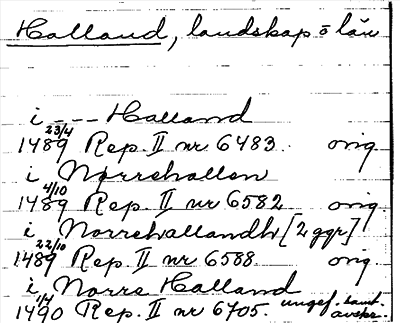 Halland, landskap o län
i --- Halland
1489 23/4 Rep. II nr 6483. orig.
i Nørrehallen
1489 4/10 Rep. II nr 6582 orig.
i Norrehallandh [2 ggr]
1489 22/10 Rep. II nr 6588 orig.
i Norre Halland
1490 1/4 Rep. II nr 6705. ungef. samt. avskr.